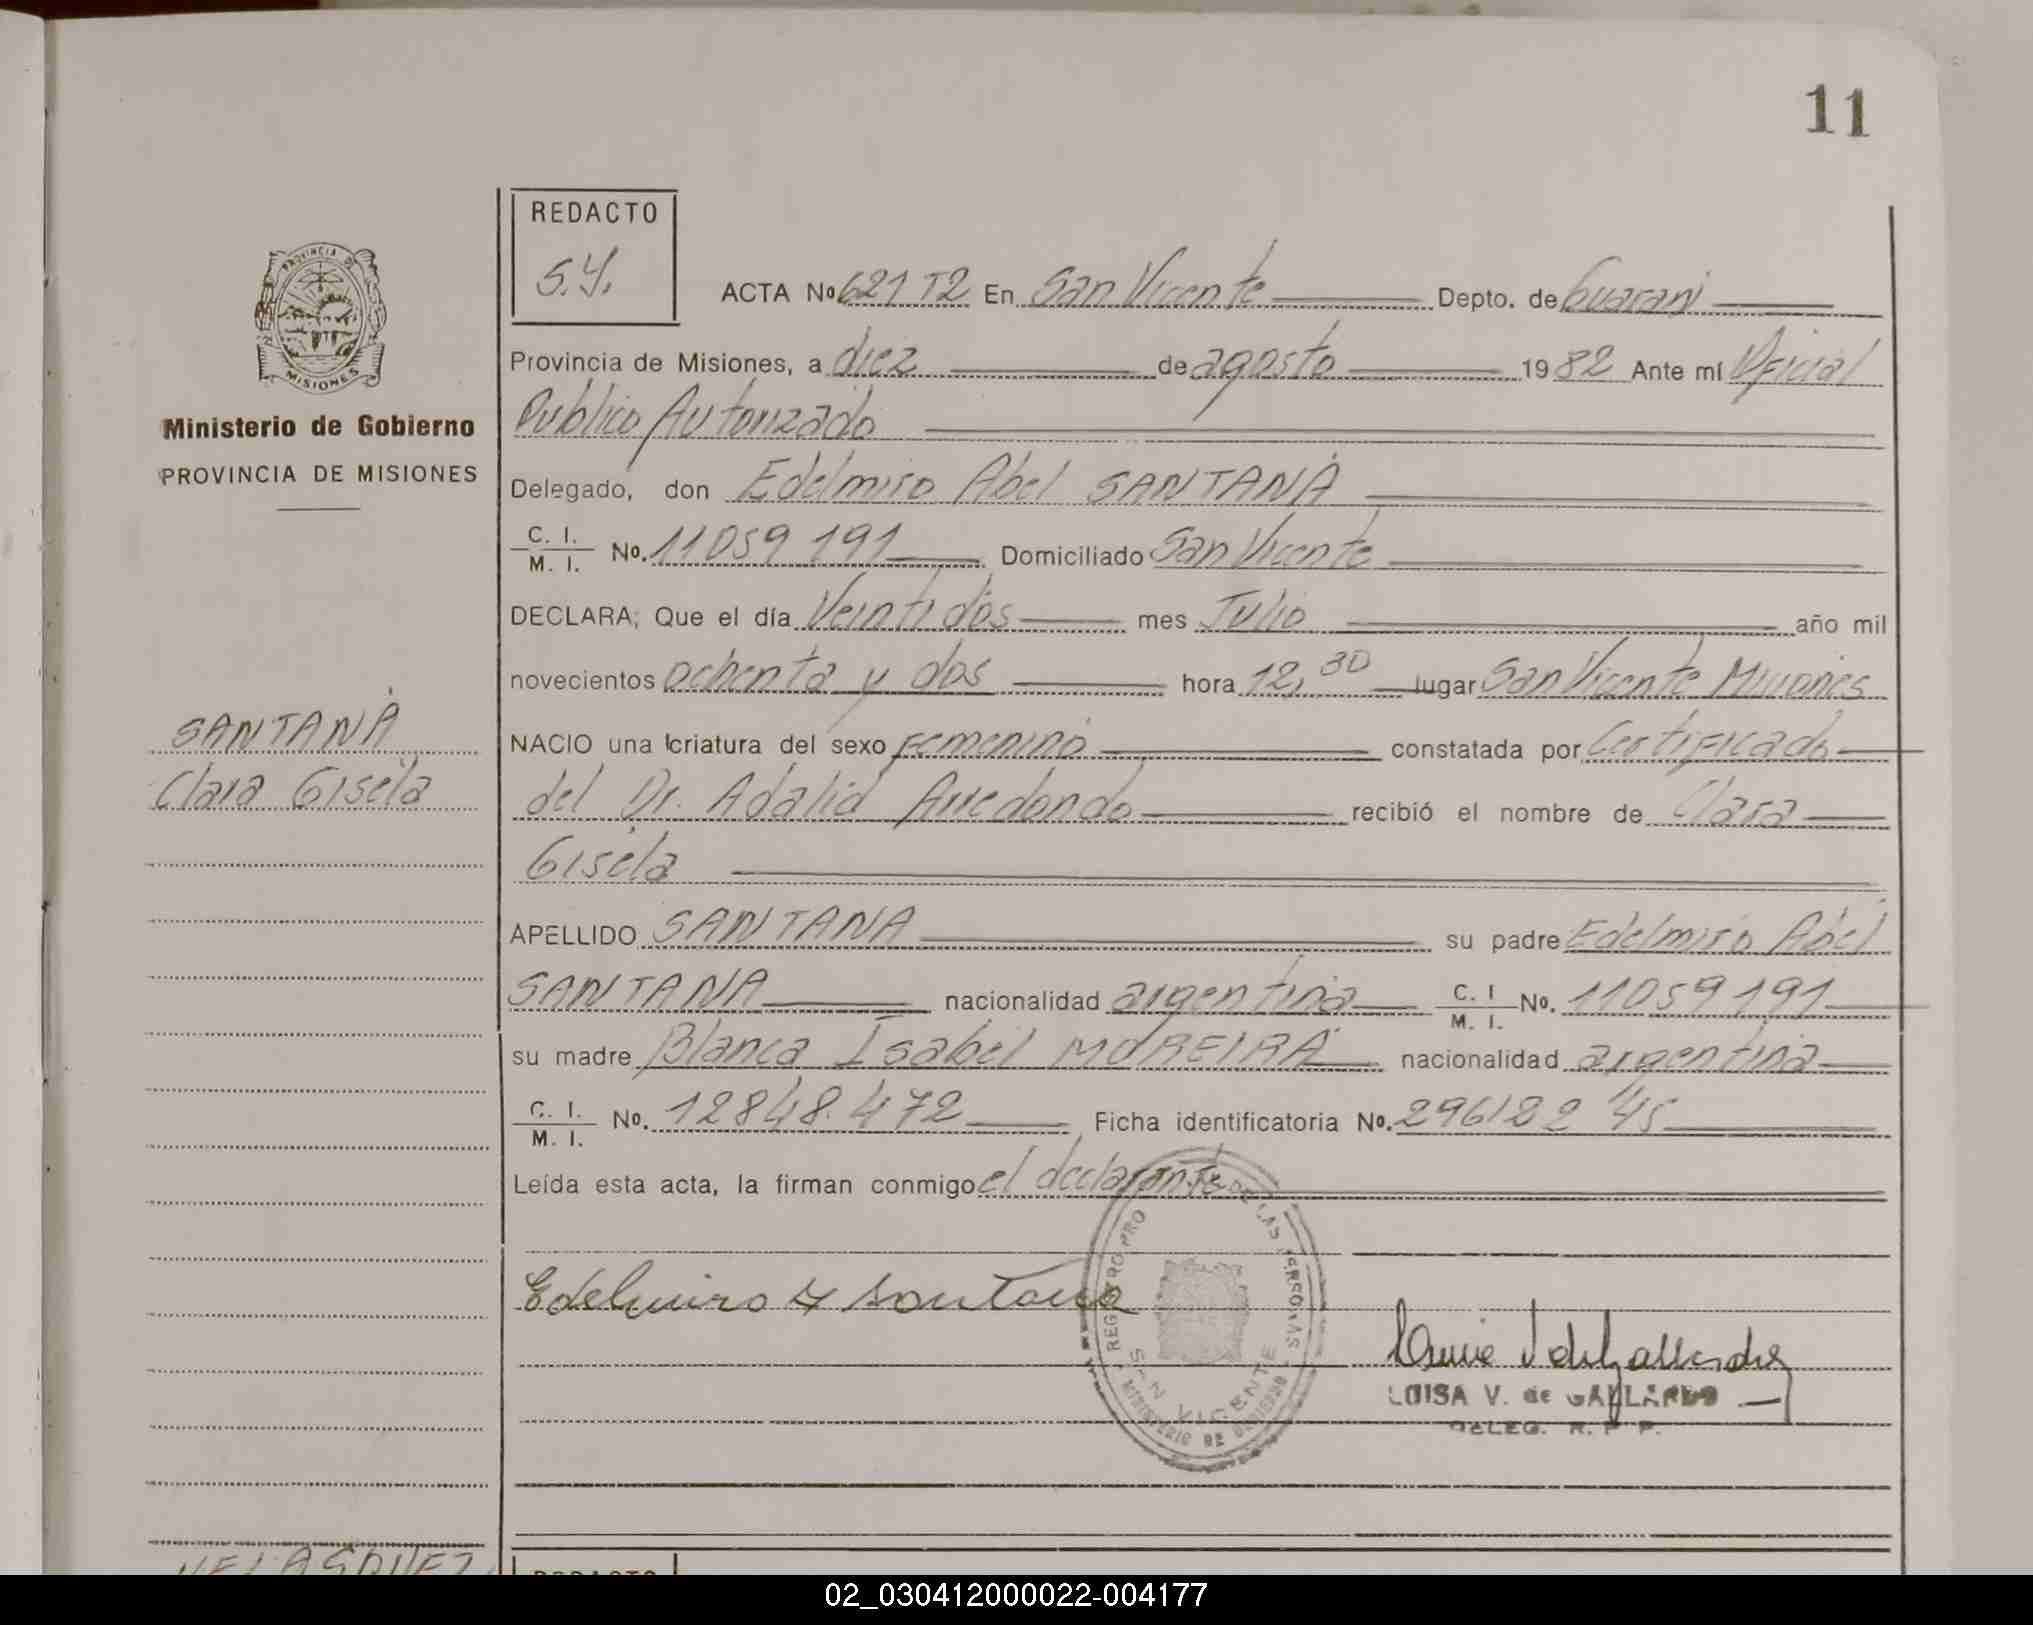 11
REDACTO
S.Y.
ACTA Nº 621 T2 En San Vicente Depto. de Guarani
Provincia de Misiones, a diez de agosto 1982 Ante mí Oficial
Publico Autorizado
Delegado, don Edelmiro Abel SANTANA
C. I. / M. I. Nº. 11059191 Domiciliado San Vicente
DECLARA; Que el día Veintidós mes Julio año mil
novecientos ochenta y dos hora 12,30 lugar San Vicente Misiones
NACIO una criatura del sexo Femenino constatada por Certificado
del Dr. Adalid Arredondo recibió el nombre de Clara
Gisela
APELLIDO SANTANA su padre Edelmiro Abel
SANTANA nacionalidad argentina C. I / M. I. Nº. 11059191
su madre Blanca Isabel MOREIRA nacionalidad argentina
C. I. / M. I. Nº. 12848.472 Ficha identificatoria Nº. 296122
Leída esta acta, la firman conmigo el declarante
Edelmiro A Santana
LUISA V. de GALLARDO
DELEG. R. P. P.
REGISTRO PRO DE LAS PERSONAS
SAN VICENTE
MINISTERIO DE GOBIERNO
PROVINCIA DE
MISIONES
Ministerio de Gobierno
PROVINCIA DE MISIONES
SANTANA
Clara Gisela
VELASQUEZ
REDACTO
02_030412000022-004177